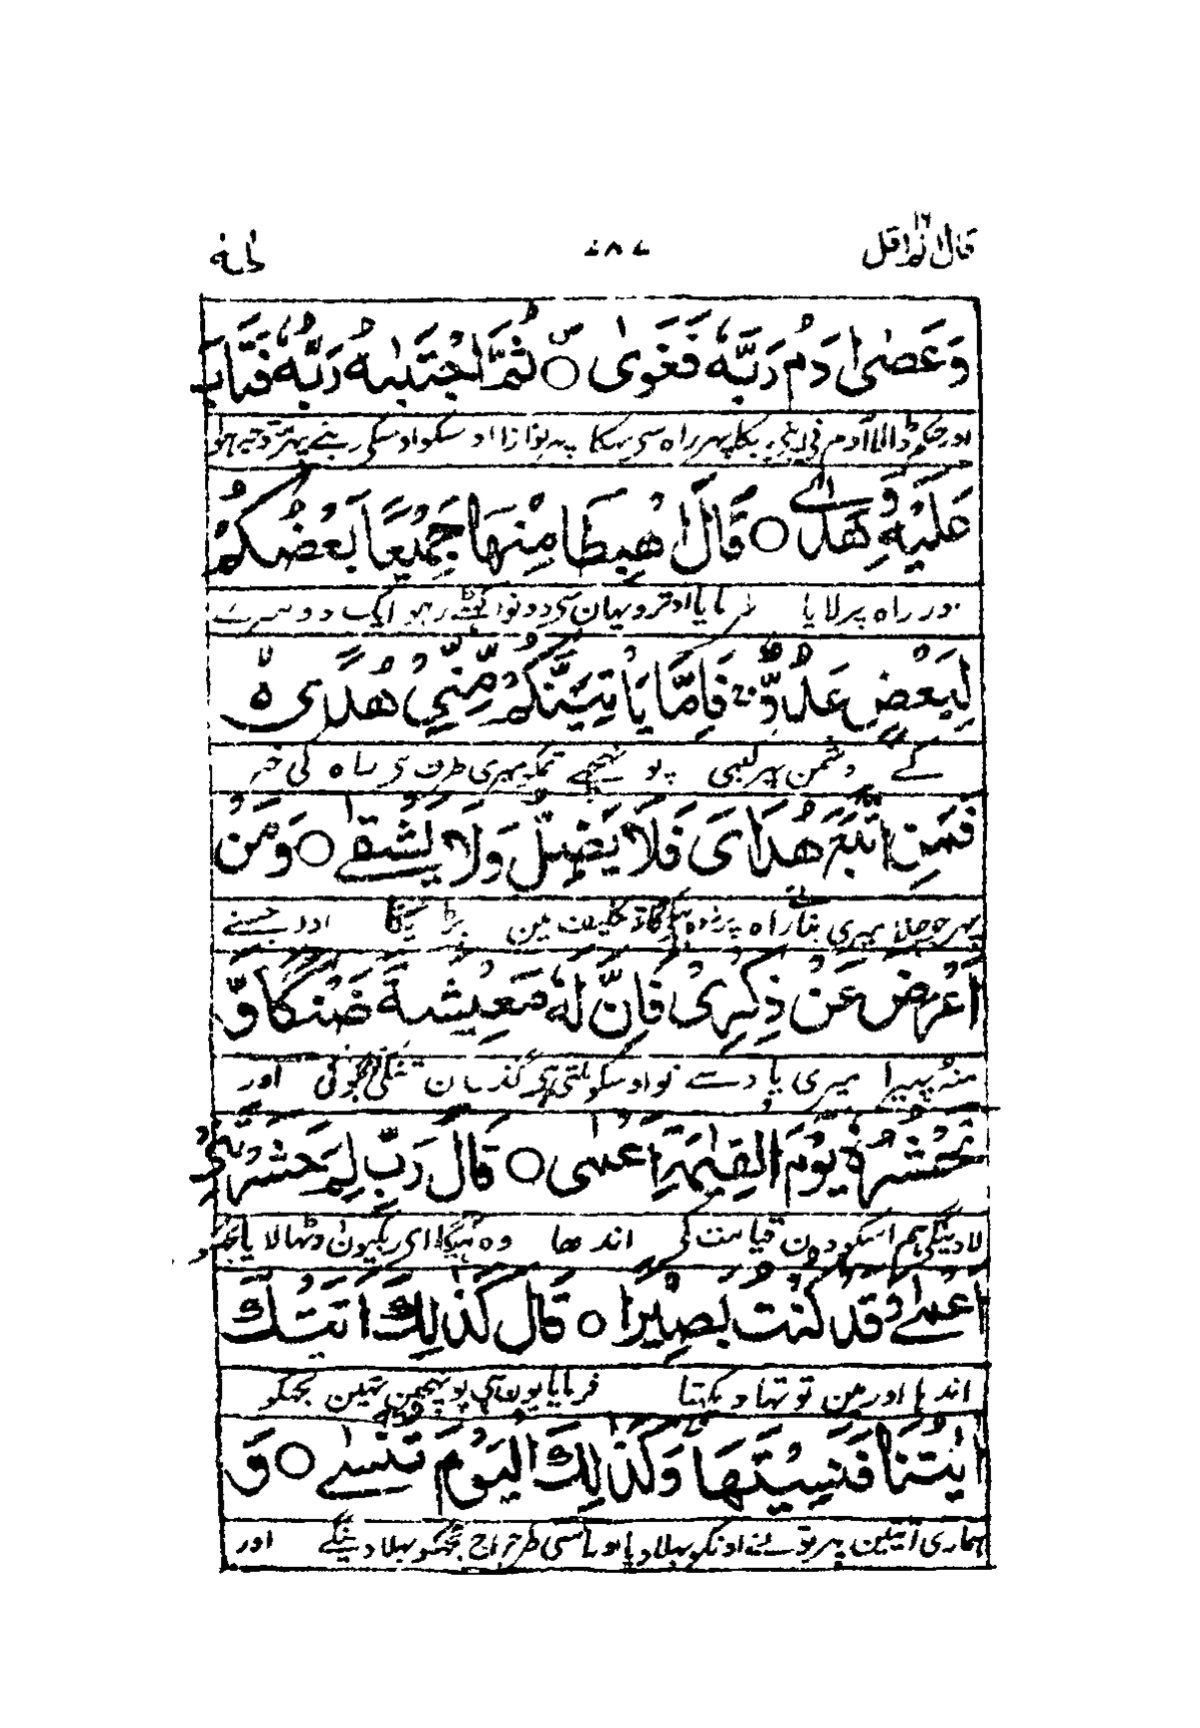 قال الم اقل ١٦
طٰهٰ
وَعَصٰى اٰدَمُ رَبَّهٗ فَغَوٰى ۝ ثُمَّ اجْتَبٰىهُ رَبُّهٗ فَتَابَ
اور حکم ٹالا آدم نی اپنی ربکا پہر راہ سی بہکا پہر نوازا اوسکو اوسکی ربنے پہر متوجہ ہوا
عَلَيْهِ وَهَدٰى ۝ قَالَ اهْبِطَا مِنْهَا جَمِيْعًا بَعْضُكُمْ
اور راہ پر لایا فرمایا اوترو یہان سی دونو اکٹھے رہو ایک دوسرے
لِبَعْضٍ عَدُوٌّ ۚ فَاِمَّا يَاْتِيَنَّكُمْ مِّنِّيْ هُدًى ۙ
کے دشمن پہر کبہی پہونچے تمکو میری طرف سی راہ کی خبر
فَمَنِ اتَّبَعَ هُدَايَ فَلَا يَضِلُّ وَلَا يَشْقٰى ۝ وَمَنْ
پہر جو چلا میری بتائے راہ پر نہ وہ بہکیگا نہ تکلیف مین پڑیگا اور جسنے
اَعْرَضَ عَنْ ذِكْرِيْ فَاِنَّ لَهٗ مَعِيْشَةً ضَنْكًا وَّ
منہ پہیرا میری یاد سے تو اوسکو ملتی ہی گذران تنگی کی اور
نَحْشُرُهٗ يَوْمَ الْقِيٰمَةِ اَعْمٰى ۝ قَالَ رَبِّ لِمَ حَشَرْتَنِيْ
لاوینگی ہم اسکو دن قیامت کی اندھا وہ کہیگا ای رب کیون اوٹھا لایا مجھکو
اَعْمٰى وَقَدْ كُنْتُ بَصِيْرًا ۝ قَالَ كَذٰلِكَ اَتَتْكَ
اندہا اور مین تو تہا دیکہتا فرمایا یون ہی پہونچین تہین تجہکو
اٰيٰتُنَا فَنَسِيْتَهَا ۚ وَكَذٰلِكَ الْيَوْمَ تُنْسٰى ۝ وَ
ہماری آیتین پہر تونے اونکو بہلا دیا اور اسی طرح آج تجہکو بہلا دینگے اور